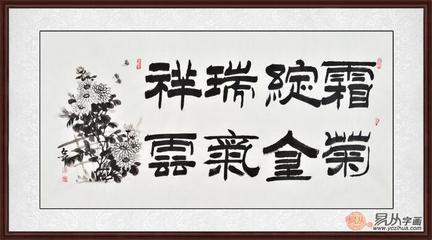 霜菊
綻金
瑞氣
祥雲
易从字画
www.yczihua.com